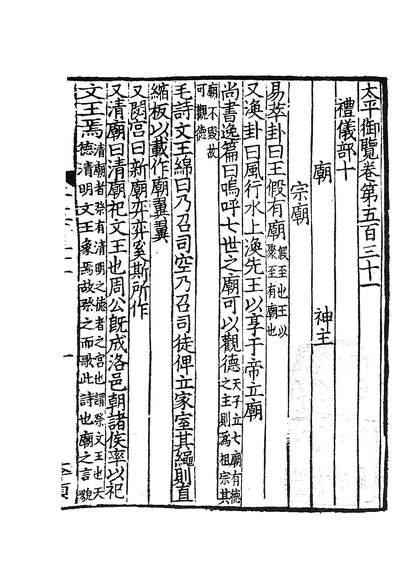 太平御覽卷第五百三十一
禮儀部十
廟 神主
宗廟
易萃卦曰王假有廟假至也王以聚至有廟也
又渙卦曰風行水上渙先王以享于帝立廟
尚書逸篇曰嗚呼七世之廟可以觀德天子立七廟有德之主則爲祖宗其
廟不毀故可觀德
毛詩文王緜曰乃召司空乃召司徒俾立家室其繩則直
縮板以載作廟翼翼
又閟宫曰新廟弈弈奚斯所作
又清廟曰清廟祀文王也周公旣成洛邑朝諸侯率以祀
文王焉清廟者祭有清明之德者之宮也謂祭文王也天德清明文王象焉故祭之而歌此詩也廟之言貌